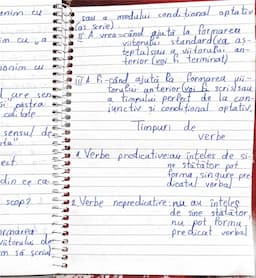 nim cu
im cu „a
onim cu
l care sen
și păstra
calitate
sensul de
ta"
ect
din ce ca
scop?
ormarea
viitorului de
m să scriu
sau a modului condițional optativ
(aș scrie)
II A vrea - când ajută la formarea
viitorului standard (va aș-
tepta) sau a viitorului an-
terior (voi fi terminat)
III A fi - când ajută la formarea vii-
torului anterior (voi fi scris) sau
a timpului perfect de la con-
junctiv și condițional optativ.
Timpuri de
verbe
1. Verbe predicative: au înțeles de si-
ne stătător, pot
forma singure pre-
dicatul verbal
2. Verbe nepredicative: nu au înțeles
de sine stătător,
nu pot forma
predicat verbal